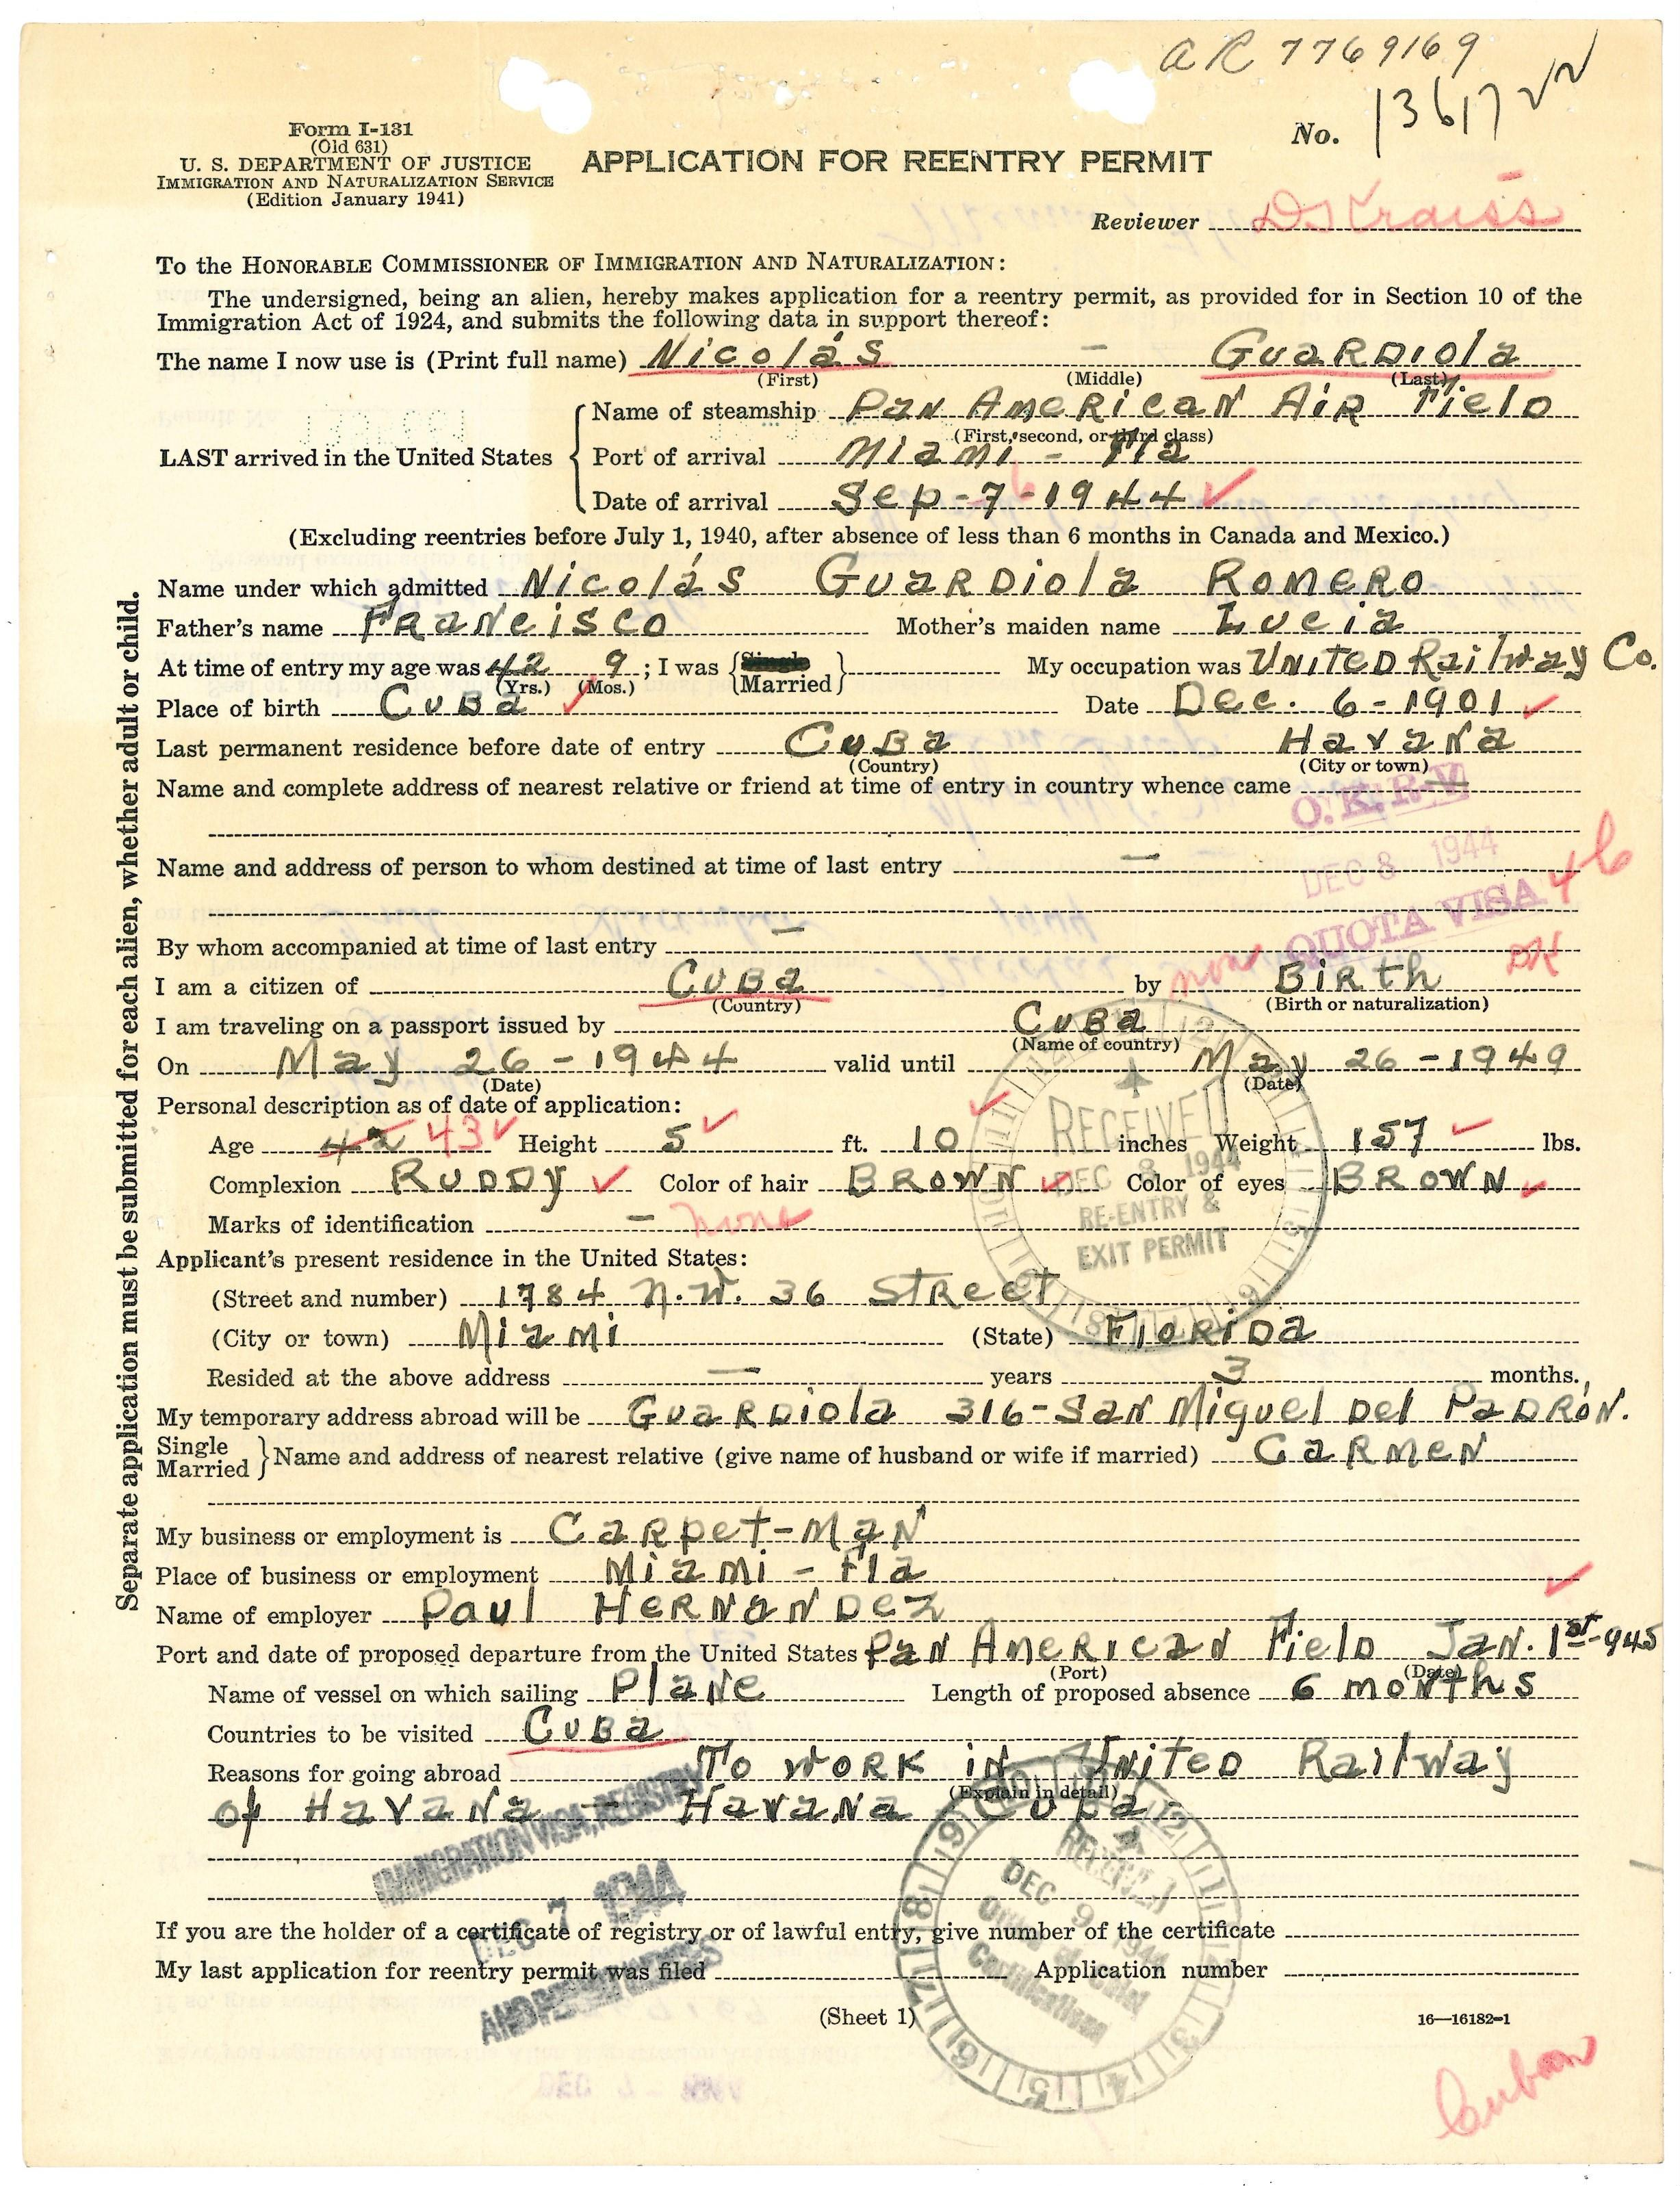 AR 7769169
No. 13617
Form I-131
(Old 631)
U. S. DEPARTMENT OF JUSTICE
IMMIGRATION AND NATURALIZATION SERVICE
(Edition January 1941)
APPLICATION FOR REENTRY PERMIT
Reviewer DSKraiss
To the HONORABLE COMMISSIONER OF IMMIGRATION AND NATURALIZATION:
The undersigned, being an alien, hereby makes application for a reentry permit, as provided for in Section 10 of the
Immigration Act of 1924, and submits the following data in support thereof:
The name I now use is (Print full name) Nicolás - Guardiola
(First) (Middle) (Last)
LAST arrived in the United States
Name of steamship Pan American Air Field
(First, second, or third class)
Port of arrival Miami - Fla
Date of arrival Sep-7-1944 6
(Excluding reentries before July 1, 1940, after absence of less than 6 months in Canada and Mexico.)
Name under which admitted Nicolás Guardiola Romero
Father's name Francisco Mother's maiden name Lucia
At time of entry my age was 42 9; I was {Single Married} My occupation was United Railway Co.
(Yrs.) (Mos.)
Place of birth Cuba Date Dec. 6-1901
Last permanent residence before date of entry Cuba Havana
(Country) (City or town)
Name and complete address of nearest relative or friend at time of entry in country whence came —
O.K. R-V
DEC 8 1944
Name and address of person to whom destined at time of last entry —
QUOTA VISA
4b
By whom accompanied at time of last entry —
non
DK
I am a citizen of Cuba by Birth
(Country) (Birth or naturalization)
I am traveling on a passport issued by Cuba
(Name of country)
On May 26-1944 valid until May 26-1949
(Date) (Date)
Personal description as of date of application:
Age 42 43 Height 5 ft. 10 inches Weight 157 lbs.
Complexion Ruddy Color of hair Brown Color of eyes Brown
Marks of identification - none
RECEIVED
DEC 8 1944
RE-ENTRY &
EXIT PERMIT
Applicant's present residence in the United States:
(Street and number) 1784 N.W. 36 Street
(City or town) Miami (State) Florida
Resided at the above address — years 3 months.
My temporary address abroad will be Guardiola 316-San Miguel Del Padrón.
Single
Married } Name and address of nearest relative (give name of husband or wife if married) Carmen
My business or employment is Carpet-Man
Place of business or employment Miami - Fla
Name of employer Paul Hernandez
Port and date of proposed departure from the United States Pan American Field Jan. 1st-945
(Port) (Date)
Name of vessel on which sailing Plane Length of proposed absence 6 months
Countries to be visited Cuba
Reasons for going abroad To work in United Railway
(Explain in detail)
of Havana - Havana Cuba-
IMMIGRATION VISA, REGISTRY
DEC 7 1944
RECEIVED
DEC 9 1944
Certifications
If you are the holder of a certificate of registry or of lawful entry, give number of the certificate
My last application for reentry permit was filed Application number
(Sheet 1)
16—16182-1
Cuban
Separate application must be submitted for each alien, whether adult or child.